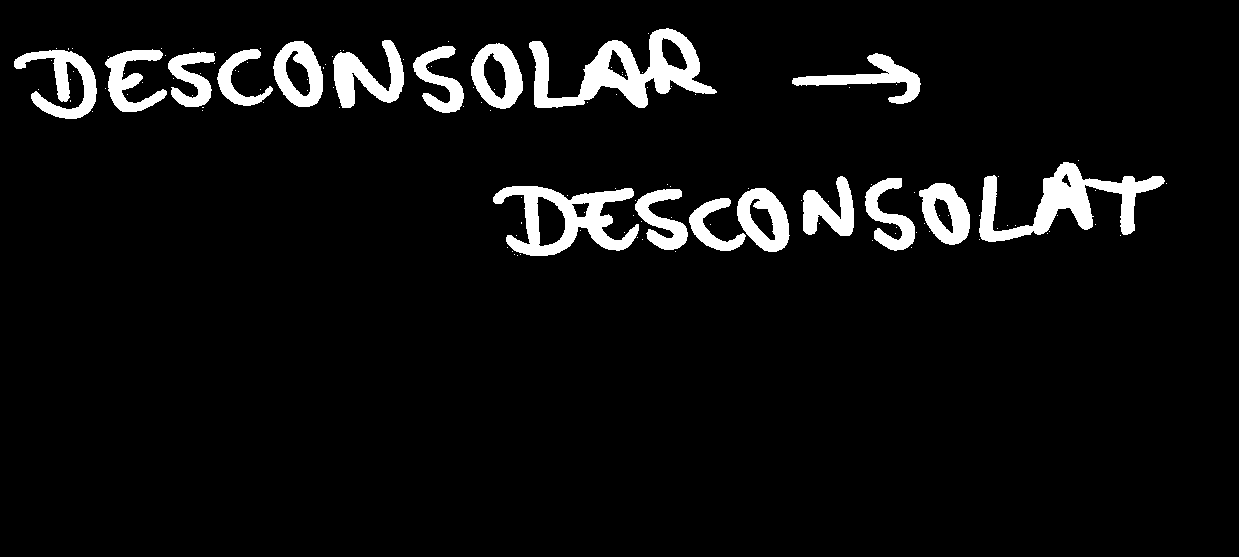 DESCONSOLAR →
DESCONSOLAT